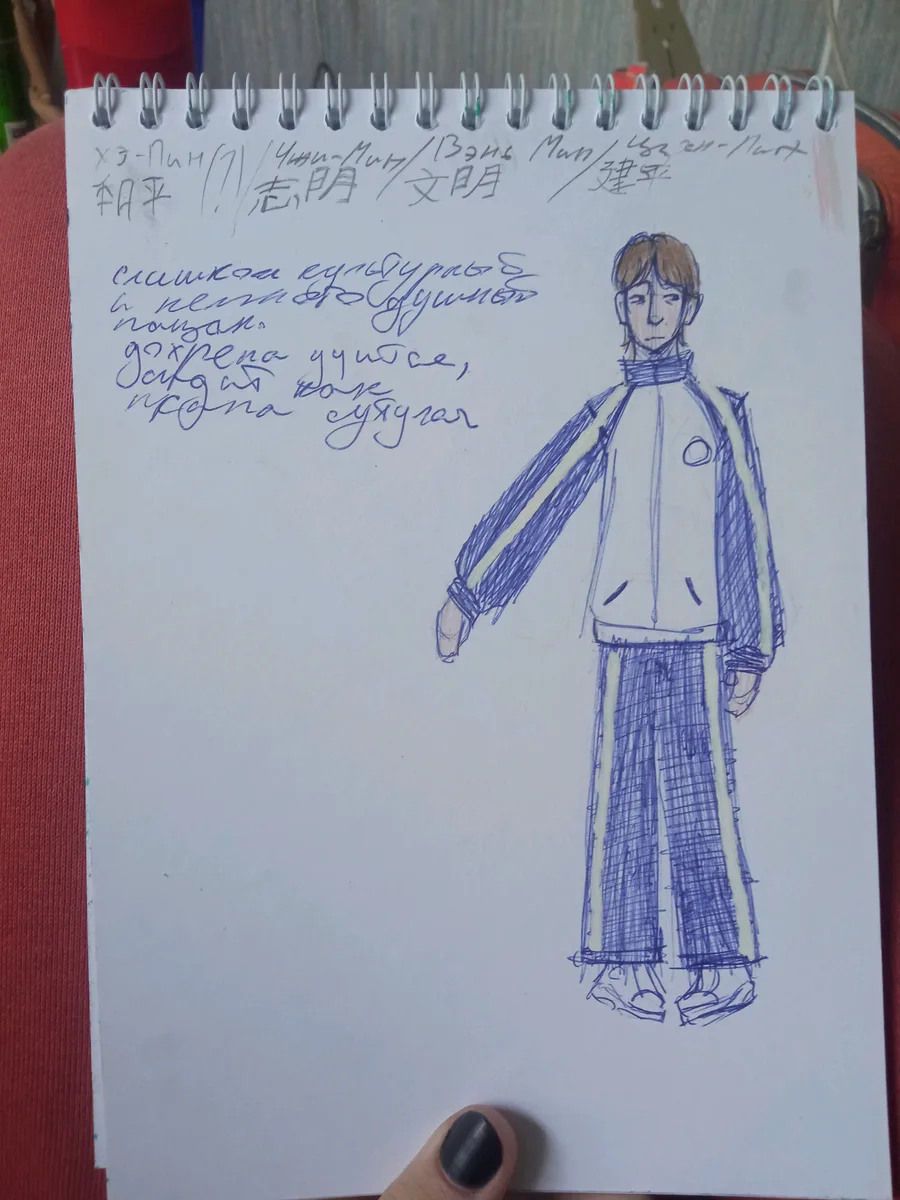 Хэ-Пин (?) / Чжи-Мин / Вэнь Мин / Цзян-Пин
和平 / 志明 / 文明 / 建平
слишком культурный
и немного душный
пацан.
дохрена учится,
сидит как
жопа сутулая